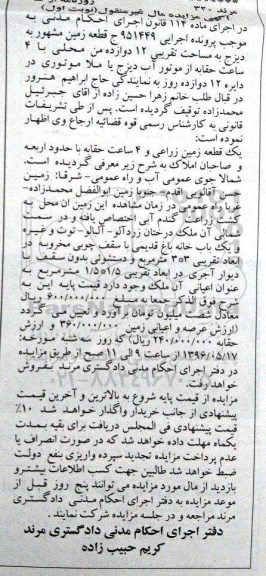 مرند ۳۳۰
آگهی مزایده مال غیرمنقول (نوبت اول)
در اجرای ماده ۱۱۴ قانون اجرای احکام مدنی به
موجب پرونده اجرایی ۹۵۱۴۴۹ ج قطعه زمین مشهور به
دیزج به مساحت تقریبی ۱۲ دوازده من محلی با ۴
ساعت حقابه از موتور آب دیزج یا ملا موتوری در
دایره ۱۲ دوازده روز به نمایندگی حاج ابراهیم هنرور
در قبال طلب خانم زهرا حسین زاده از آقای جبرئیل
محمدزاده توقیف گردیده است. پس از طی تشریفات
قانونی به کارشناس رسمی قوه قضائیه ارجاع وی اظهار
نموده است:
یک قطعه زمین زراعی و ۴ ساعت حقابه با حدود اربعه
و صاحبان املاک به شرح زیر معرفی گردیده است،
شمالا جوی عمومی آب و راه عمومی- شرقا: زمین
قانونی اقدم- جنوبا زمین ابوالفضل محمدزاده-
غربا راه عمومی در زمان مشاهده این زمین ان محل به
کشت زراعت گندم آبی اختصاص یافته و در سمت
آن ملک درختان زردآلو- آلبالو- توت و غیره
و یک باب خانه باغ قدیمی با سقف چوبی مخروبه در
ابعاد تقریبی ۳*۳ مترمربع و دستشوئی بدون سقف با
دیوار آجری در ابعاد تقریبی ۱/۵*۱/۵ مترمربع به
عنوان اعیانی آن ملک وجود دارد قیمت پایه این به
شرح فوق الذکر جمعا به مبلغ ۶۰۰/۰۰۰/۰۰۰ ریال
معادل شصت میلیون تومان برآورد و تعیین می گردد
(ارزش عرصه و اعیانی زمین ۳۶۰/۰۰۰/۰۰۰ و ارزش
حقابه ۲۴۰/۰۰۰/۰۰۰ ریال) که روز سه شنبه مورخه:
۱۳۹۶/۰۵/۱۷ از ساعت ۹ الی ۱۱ صبح از طریق مزایده
در دفتر اجرای احکام مدنی دادگستری مرند بفروش
خواهد رفت.
مزایده از قیمت پایه شروع به بالاترین و آخرین قیمت
پیشنهادی از جانب خریدار واگذار خواهد شد ۱۰٪
قیمت پیشنهادی فی المجلس دریافت برای بقیه بمدت
یکماه مهلت داده خواهد شد که در صورت انصراف یا
عدم پرداخت مزایده تجدید سپرده واریزی بنفع دولت
ضبط خواهد شد طالبین جهت کسب اطلاعات بیشتر و
بازدید از مال مورد مزایده می توانند پنج روز قبل از
موعد مزایده به دفتر اجرای احکام مدنی دادگستری
مرند مراجعه و در جلسه مزایده شرکت نمایند.
دفتر اجرای احکام مدنی دادگستری مرند
کریم حبیب زاده